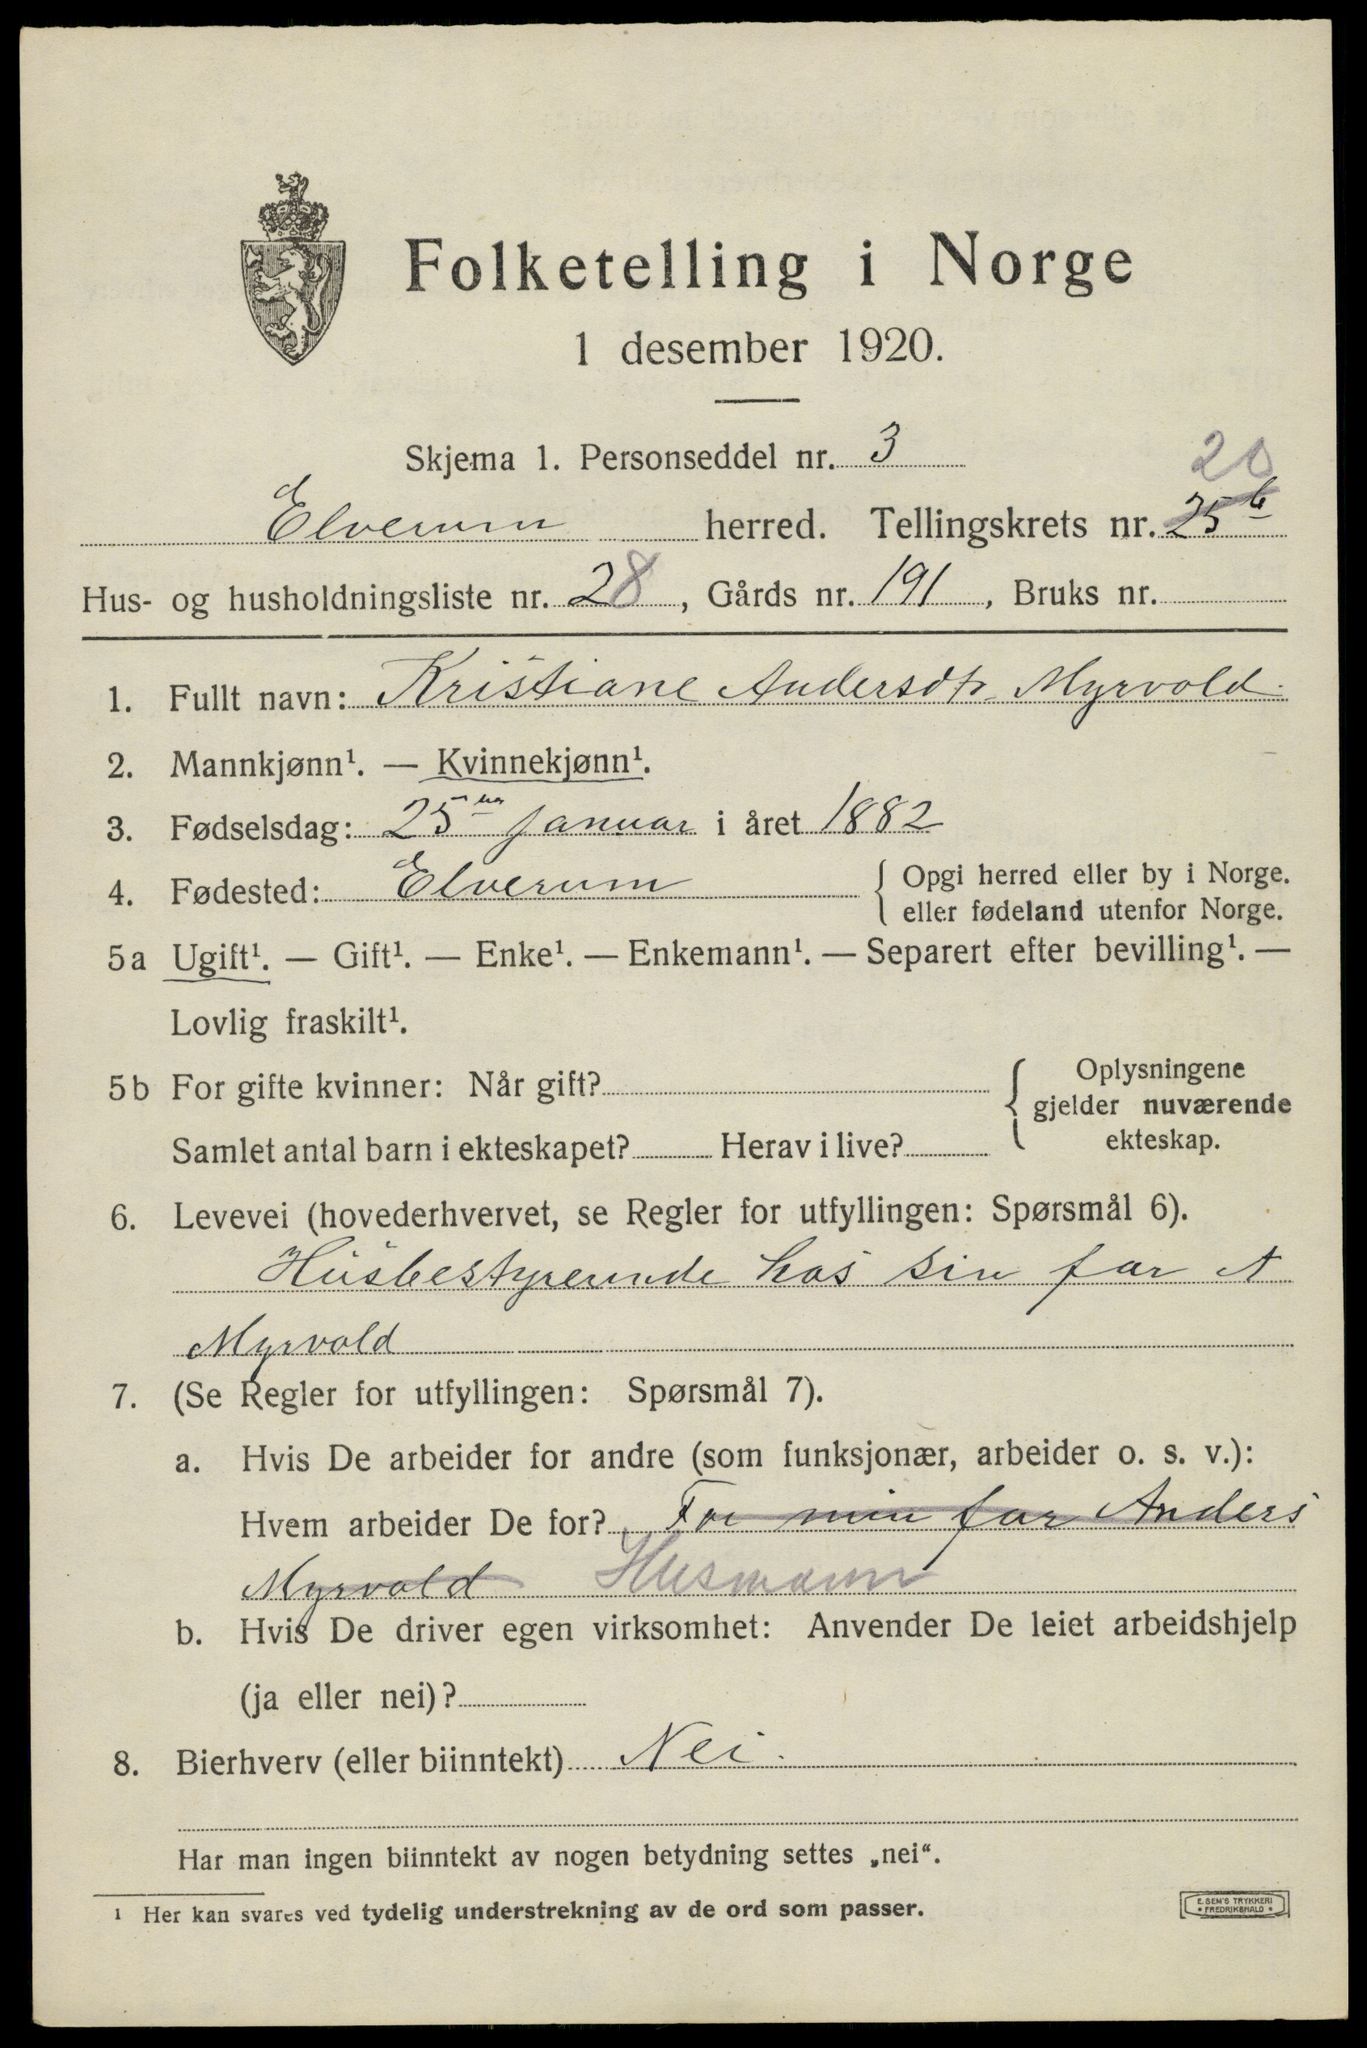 Folketelling i Norge
1 desember 1920.
Skjema 1. Personseddel nr. 3
20
Elverum herred. Tellingskrets nr. 25 b
Hus- og husholdningsliste nr. 28, Gårds nr. 191, Bruks nr.
1. Fullt navn: Kristiane Andersdtr. Myrvold.
2. Mannkjønn¹. — Kvinnekjønn¹.
3. Fødselsdag: 25de januar i året 1882
4. Fødested: Elverum { Opgi herred eller by i Norge.
eller fødeland utenfor Norge.
5a Ugift¹. — Gift¹. — Enke¹. — Enkemann¹. — Separert efter bevilling¹. —
Lovlig fraskilt¹.
5b For gifte kvinner: Når gift? { Oplysningene
gjelder nuværende
Samlet antal barn i ekteskapet? Herav i live? ekteskap.
6. Levevei (hovederhvervet, se Regler for utfyllingen: Spørsmål 6).
Husbestyrerinde hos sin far A
Myrvold
7. (Se Regler for utfyllingen: Spørsmål 7).
a. Hvis De arbeider for andre (som funksjonær, arbeider o. s. v.):
Hvem arbeider De for? For min far Anders
Myrvold Husmann
b. Hvis De driver egen virksomhet: Anvender De leiet arbeidshjelp
(ja eller nei)?
8. Bierhverv (eller biinntekt) Nei.
Har man ingen biinntekt av nogen betydning settes „nei“.
¹ Her kan svares ved tydelig understrekning av de ord som passer.
E. SEM'S TRYKKERI
FREDRIKSHALD